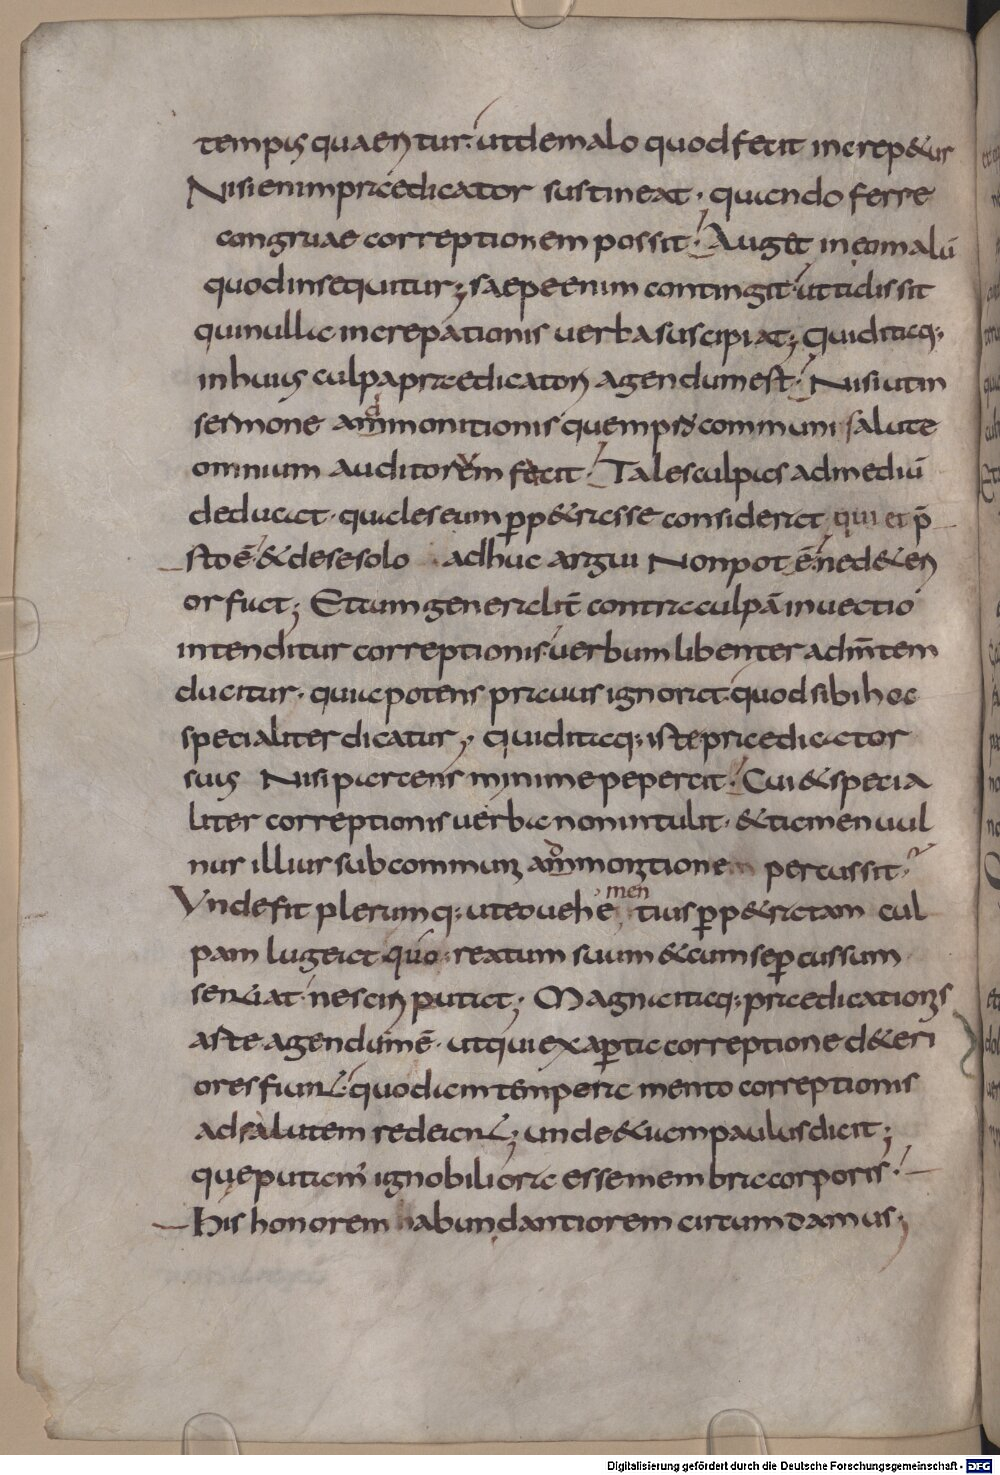 tempus quaeritur. ut de malo quod fecit increpetur
Nisi enim praedicator sustineat. quando ferre
congruae correptionem possit. Auget in eo malū
quod insequitur; saepe enim contingit. ut talis sit
qui nulla increpationis verba suscipiat; Quid itaq;
in huius culpa praedicatori agendum est. Nisi ut in
sermone ammonitionis quem pro communi salute
omnium auditorum facit. Tales culpas ad mediū
deducat. quales eum ꝑpetrasse considerat qui et p̄
sto ē. & de se solo adhuc argui Non pot ē. ne deteri
or fiat; Et cum generalit̄ contra culpā invectio
intenditur correptionis. verbum libenter ad m̄tem
ducitur. quia potens pravus ignorat. quod sibi hoc
specialiter dicatur; Quid itaq; iste praedicator
suis Nisi parcens minime pepercit. Cui & specia
liter correptionis verba non intulit. & tamen vul
nus illius sub communi ammonitione percussit.
Unde fit plerumq; ut eo vehe
men
tius ꝑpetratam cul
pam lugeat quo reatum suum & cum se ꝑcussum
sentiat. nesciri putat; Magna itaq; praedicationis
arte agendum ē. ut qui ex aꝑta correptione deteri
ores fiunt. quodam temperamento correptionis
ad salutem redeant; unde & iam paulus dicit;
que putam̄ ignobiliora esse membra corporis.
His honorem abundantiorem circumdamus;
Digitalisierung gefördert durch die Deutsche Forschungsgemeinschaft - DFG